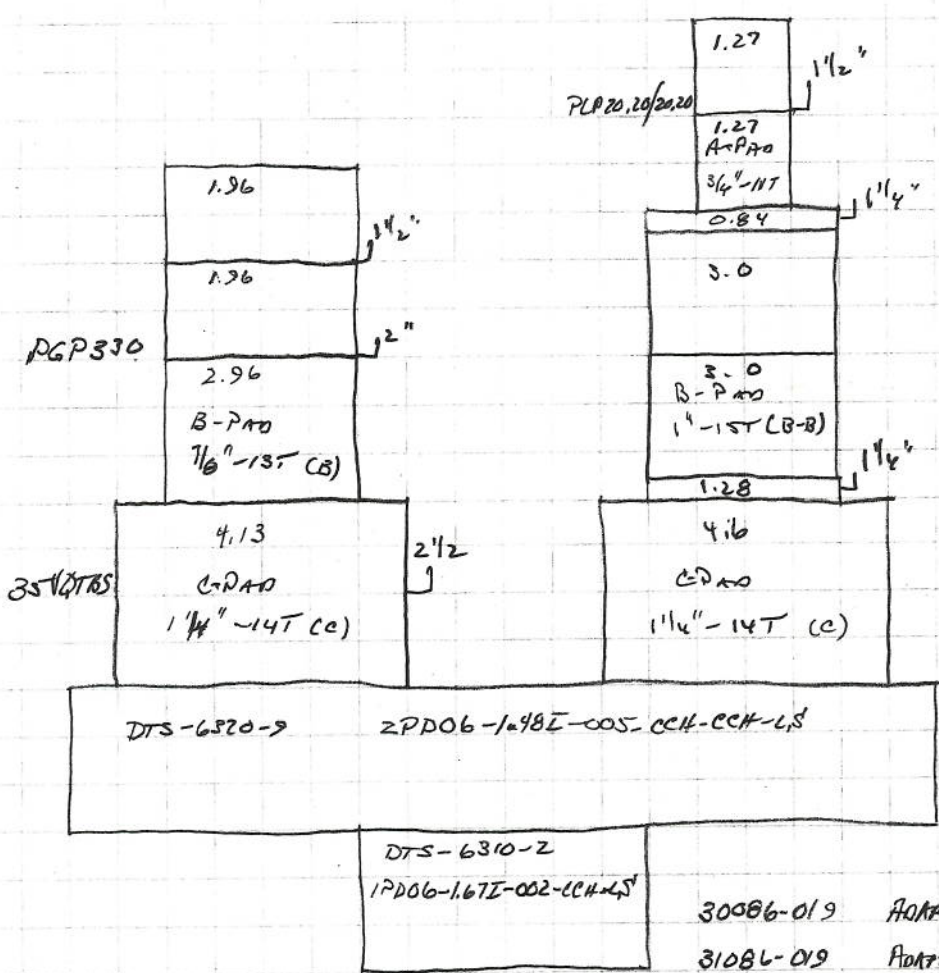 1.27
1 1/2"
PLP20.20/20.20
1.27
A-PAD
3/4"-11T
1 1/4"
0.84
3.0
3.0
B-PAD
1"-15T (B-B)
1 1/4"
1.28
4.6
C-PAD
1 1/4"-14T (C)
1.96
1 1/2"
1.96
2"
PGP330
2.96
B-PAD
7/8"-13T (B)
4.13
2 1/2
C-PAD
1 1/4"-14T (C)
DTS-6320-9
2PD06-1.48I-005-CCH-CCH-L,S
DTS-6310-2
1PD06-1.67I-002-CCH-L,S
30086-019
31086-019